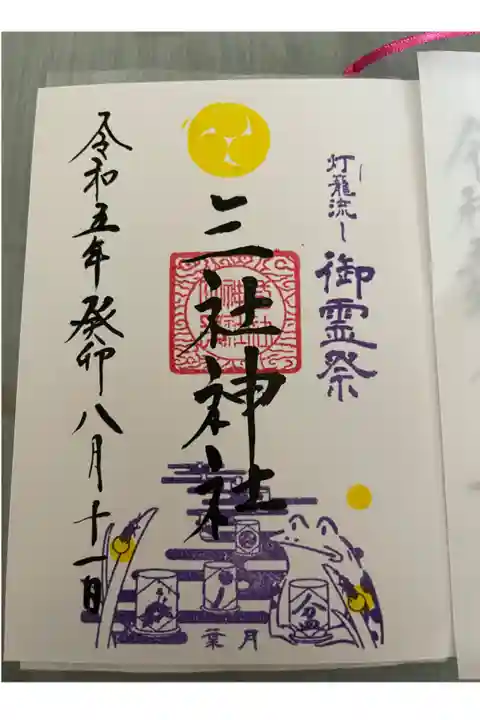 灯籠流し 御霊祭
三社神社
令和五年癸卯八月十一日
葉月